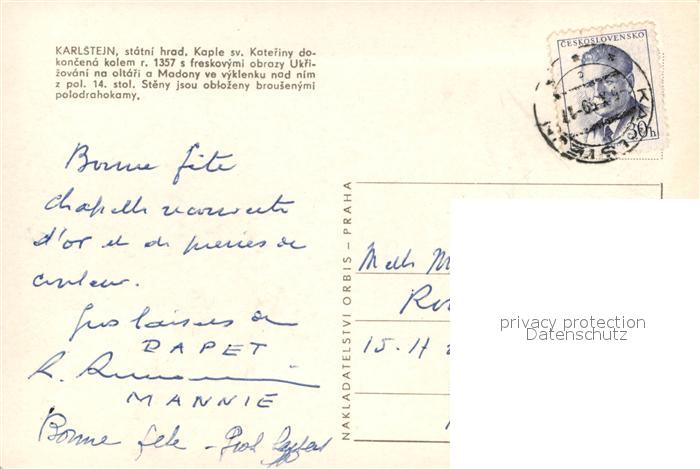 KARLŠTEJN, státní hrad. Kaple sv. Kateřiny do-
končená kolem r. 1357 s freskovými obrazy Ukři-
žování na oltáři a Madony ve výklenku nad ním
z pol. 14. stol. Stěny jsou obloženy broušenými
polodrahokamy.
ČESKOSLOVENSKO
30h
Bonne fête
chapelle recouverte
d'or et de pierres de
couleur.
Gros baisers de
PAPET
MANNIE
Bonne fête -
NAKLADATELSTVÍ ORBIS – PRAHA
Melle M
15.
privacy protection
Datenschutz